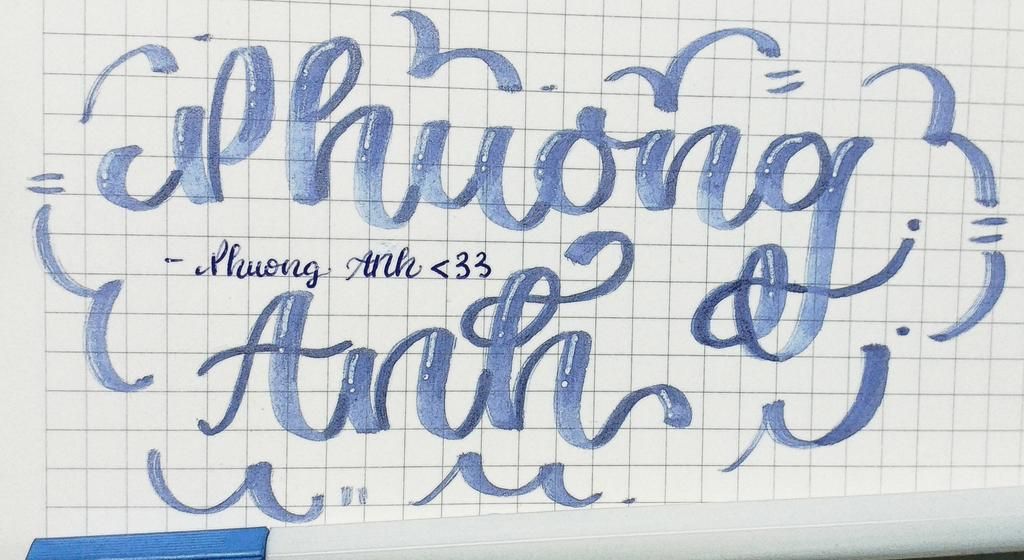 Phuong
- Phuong Anh <33
Anh